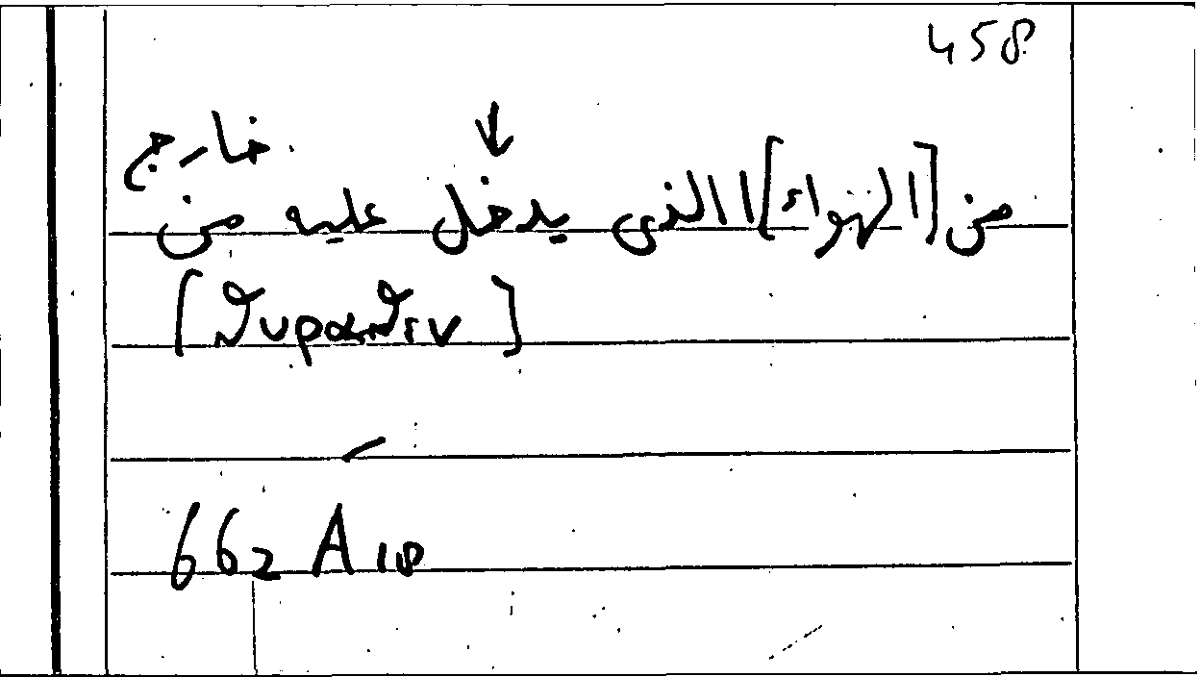 458
خارج
من [الهواء] الذى يدخل عليه من
[θυραθεν]
662 A 18